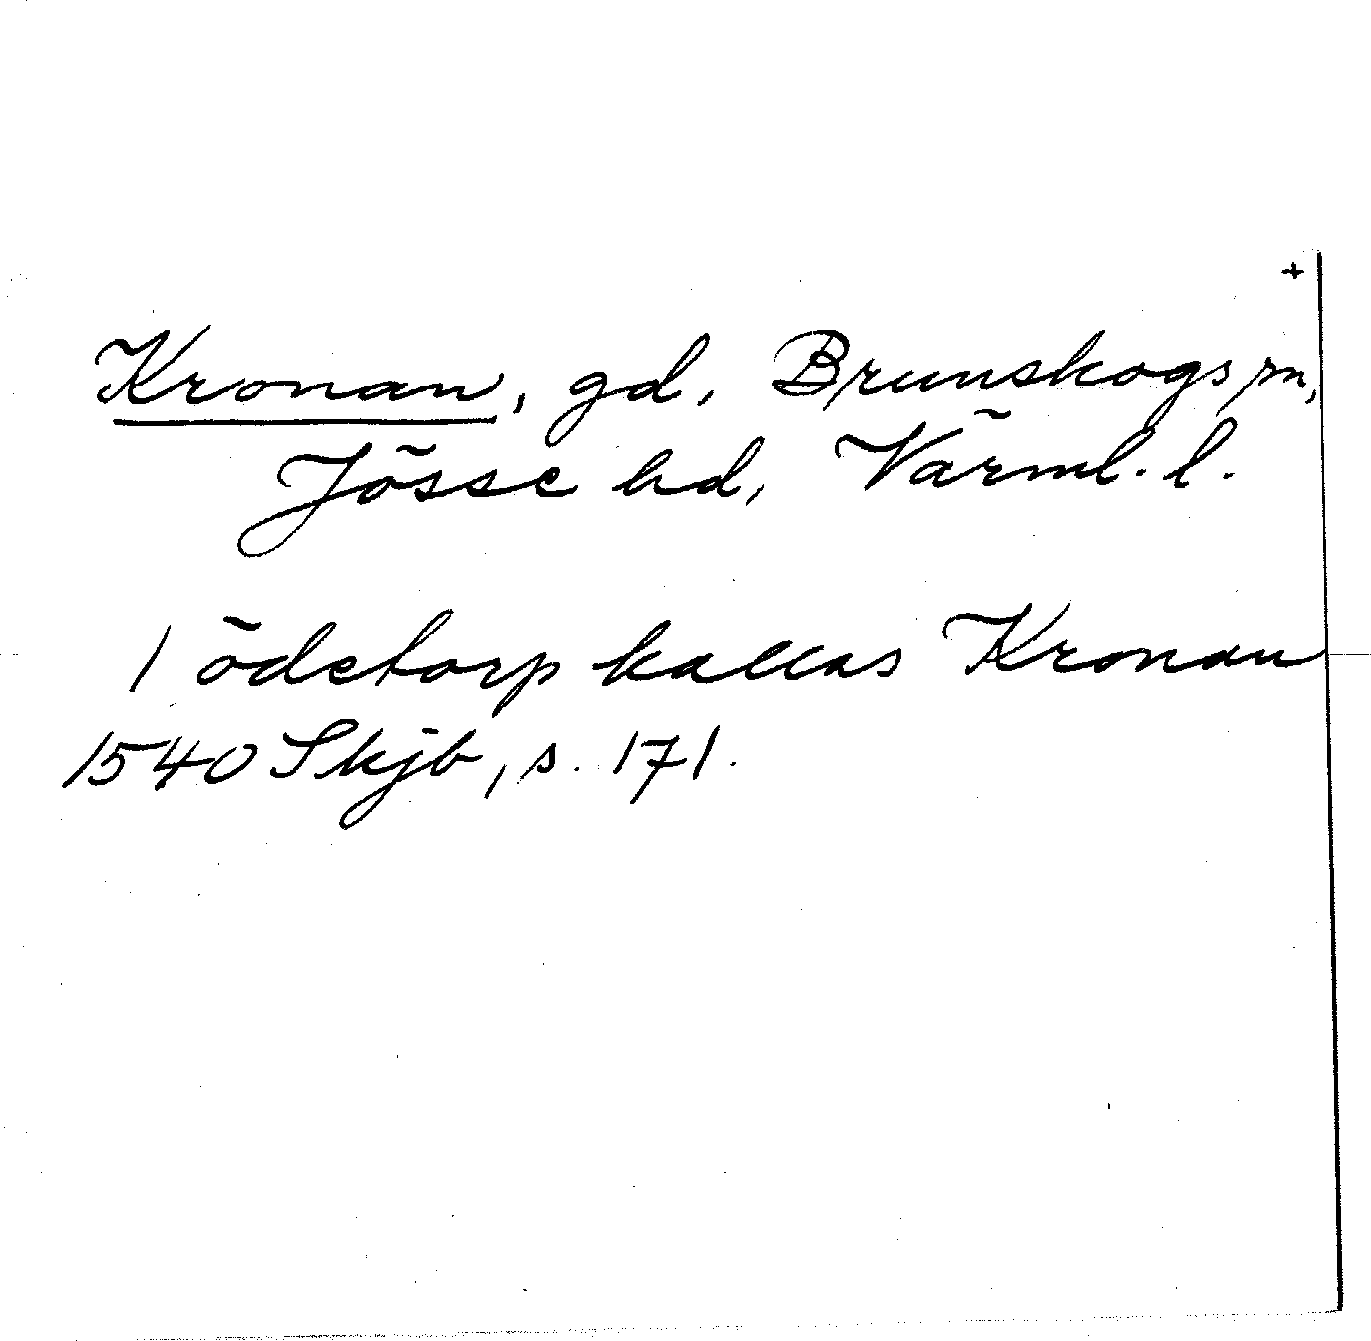 +
Kronan, gd, Brunskogs sn,
Jösse hd, Värml. l.
1 ödetorp kallas Kronan
1540 Skjb, s. 171.